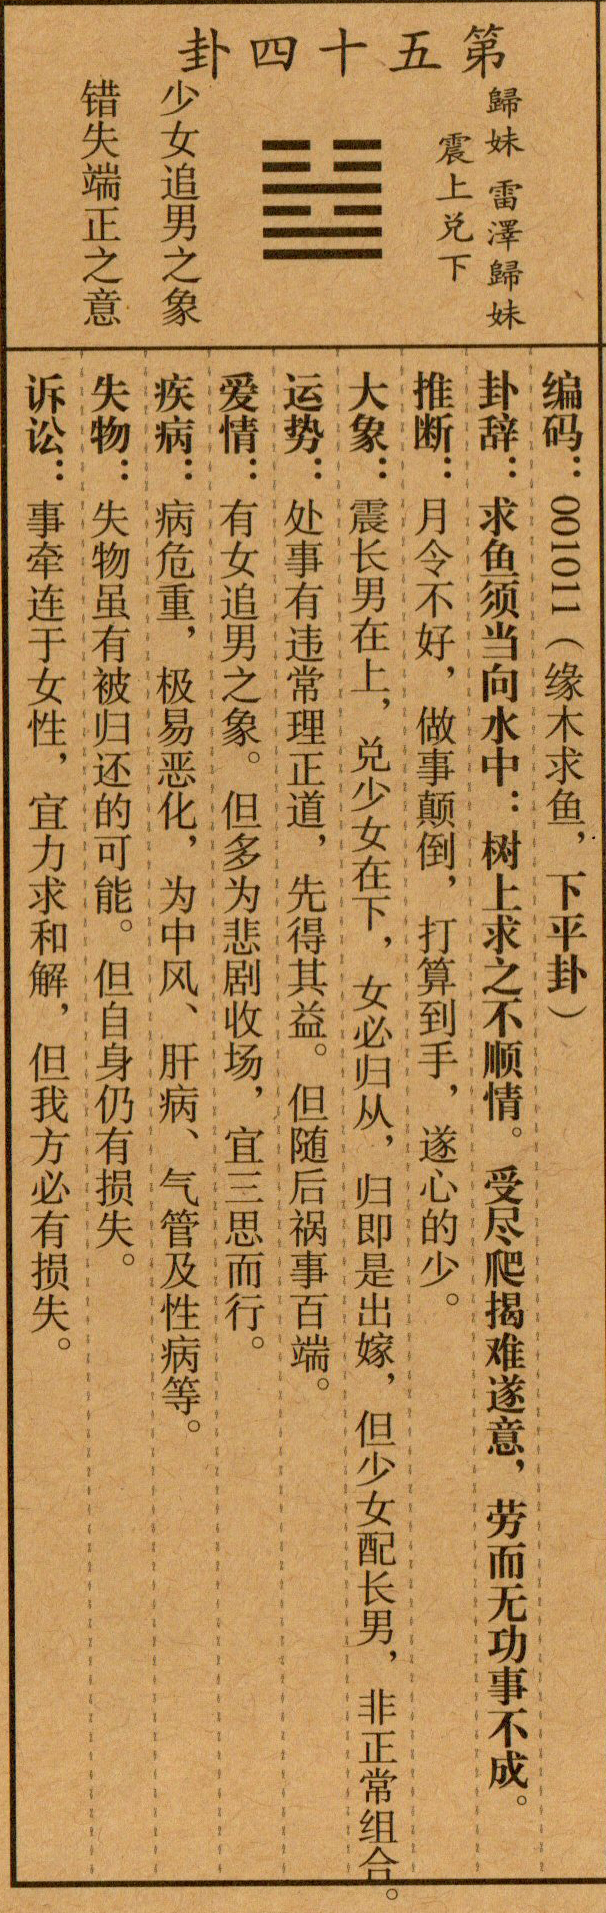 第五十四卦
歸妹 雷澤歸妹
震上兑下
少女追男之象
错失端正之意
编码：001011（缘木求鱼，下平卦）
卦辞：求鱼须当向水中：树上求之不顺情。受尽爬揭难遂意，劳而无功事不成。
推断：月令不好，做事颠倒，打算到手，遂心的少。
大象：震长男在上，兑少女在下，女必归从，归即是出嫁，但少女配长男，非正常组合。
运势：处事有违常理正道，先得其益。但随后祸事百端。
爱情：有女追男之象。但多为悲剧收场，宜三思而行。
疾病：病危重，极易恶化，为中风、肝病、气管及性病等。
失物：失物虽有被归还的可能。但自身仍有损失。
诉讼：事牵连于女性，宜力求和解，但我方必有损失。